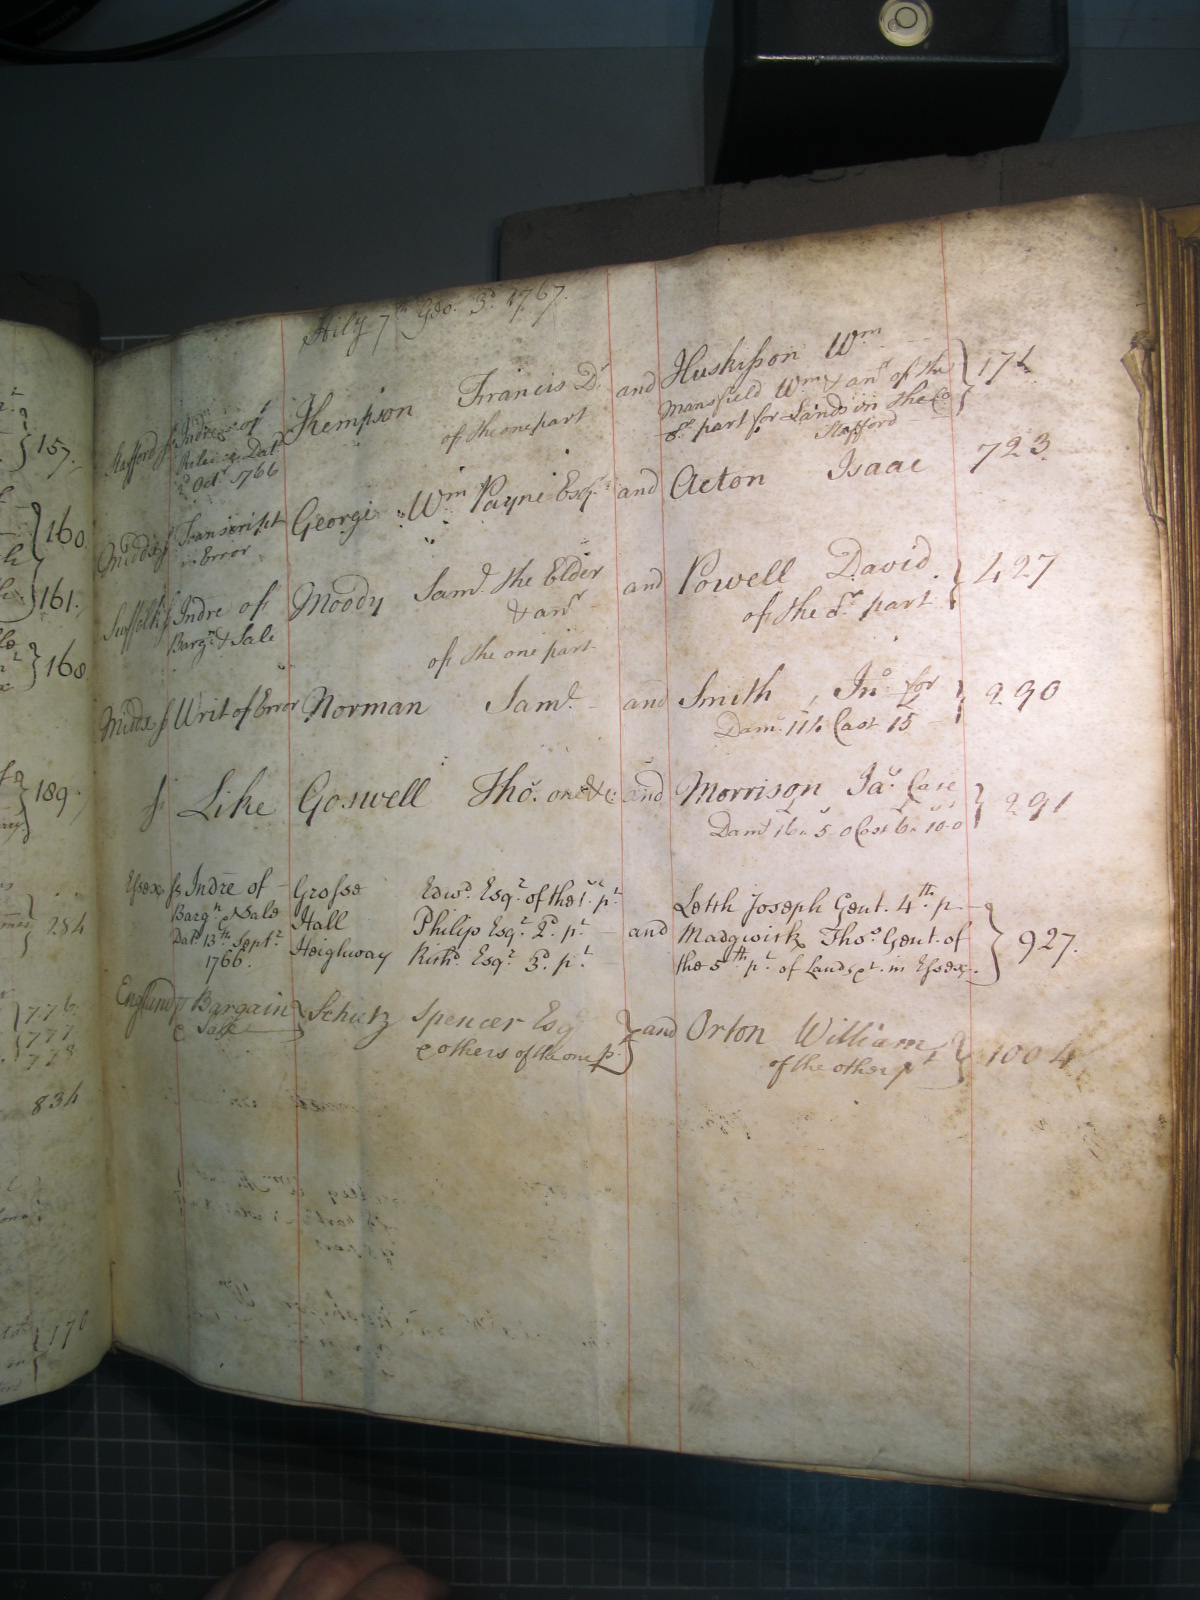 Hily 7th Geo. 3d. 1767.
Stafford ss Indre of Thempson Francis Dr. and Huskisson Wm 171
Release Dat of the one part Mansfield Wm & anr of the
Octr 1766 part for Lands in the Co
Stafford
Middx ss Transcript George Wm Payne Esqr and Acton Isaac 723.
in Error
Suffolk ss Indre of Moody Saml. the Elder and Powell David 427
Bargn & Sale & anr of the part
of the one part
Middx ss Writ of Error Norman Saml. and Smith, Jno. for 290
Dam. Cost 15
ss Like Goswell Tho. one &c. and Morrison Ja. Case 291
Dam Cost
Essex ss Indre of Grosse Edwd. Esqr. of the 1st. pt. Leith Joseph Gent. 4th. p
Bargn & Sale Hall Philip Esqr. 2d. pt. and Madgwick Thos. Gent. of 927.
Dat 13th Septr. Heighway Richd. Esqr. 3d. pt. the 5th pt. of Lands &c. in Essex.
1766.
England ss Bargain Schutz Spencer Esq and Orton William 1004
& Sale & others of the one p. of the other pt
157.
160
161.
168
189.
284
776
777
778
834
170